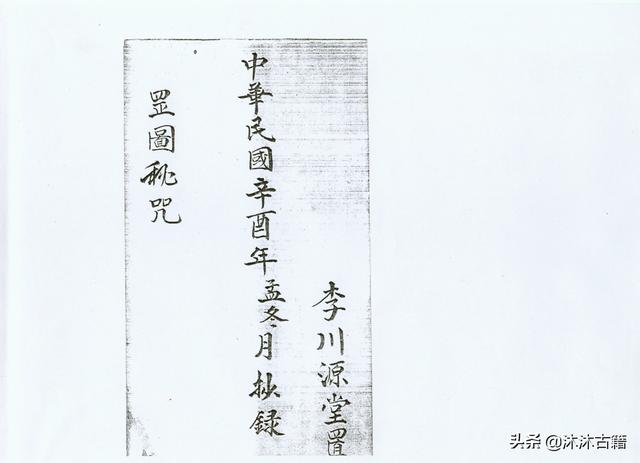 李川源堂置
中華民國辛酉年孟冬月抄録
罡圖秘咒
头条 @沐沐古籍